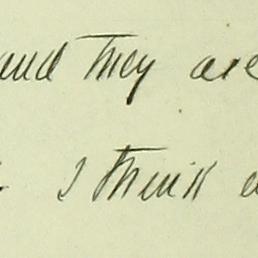 and they are
I think